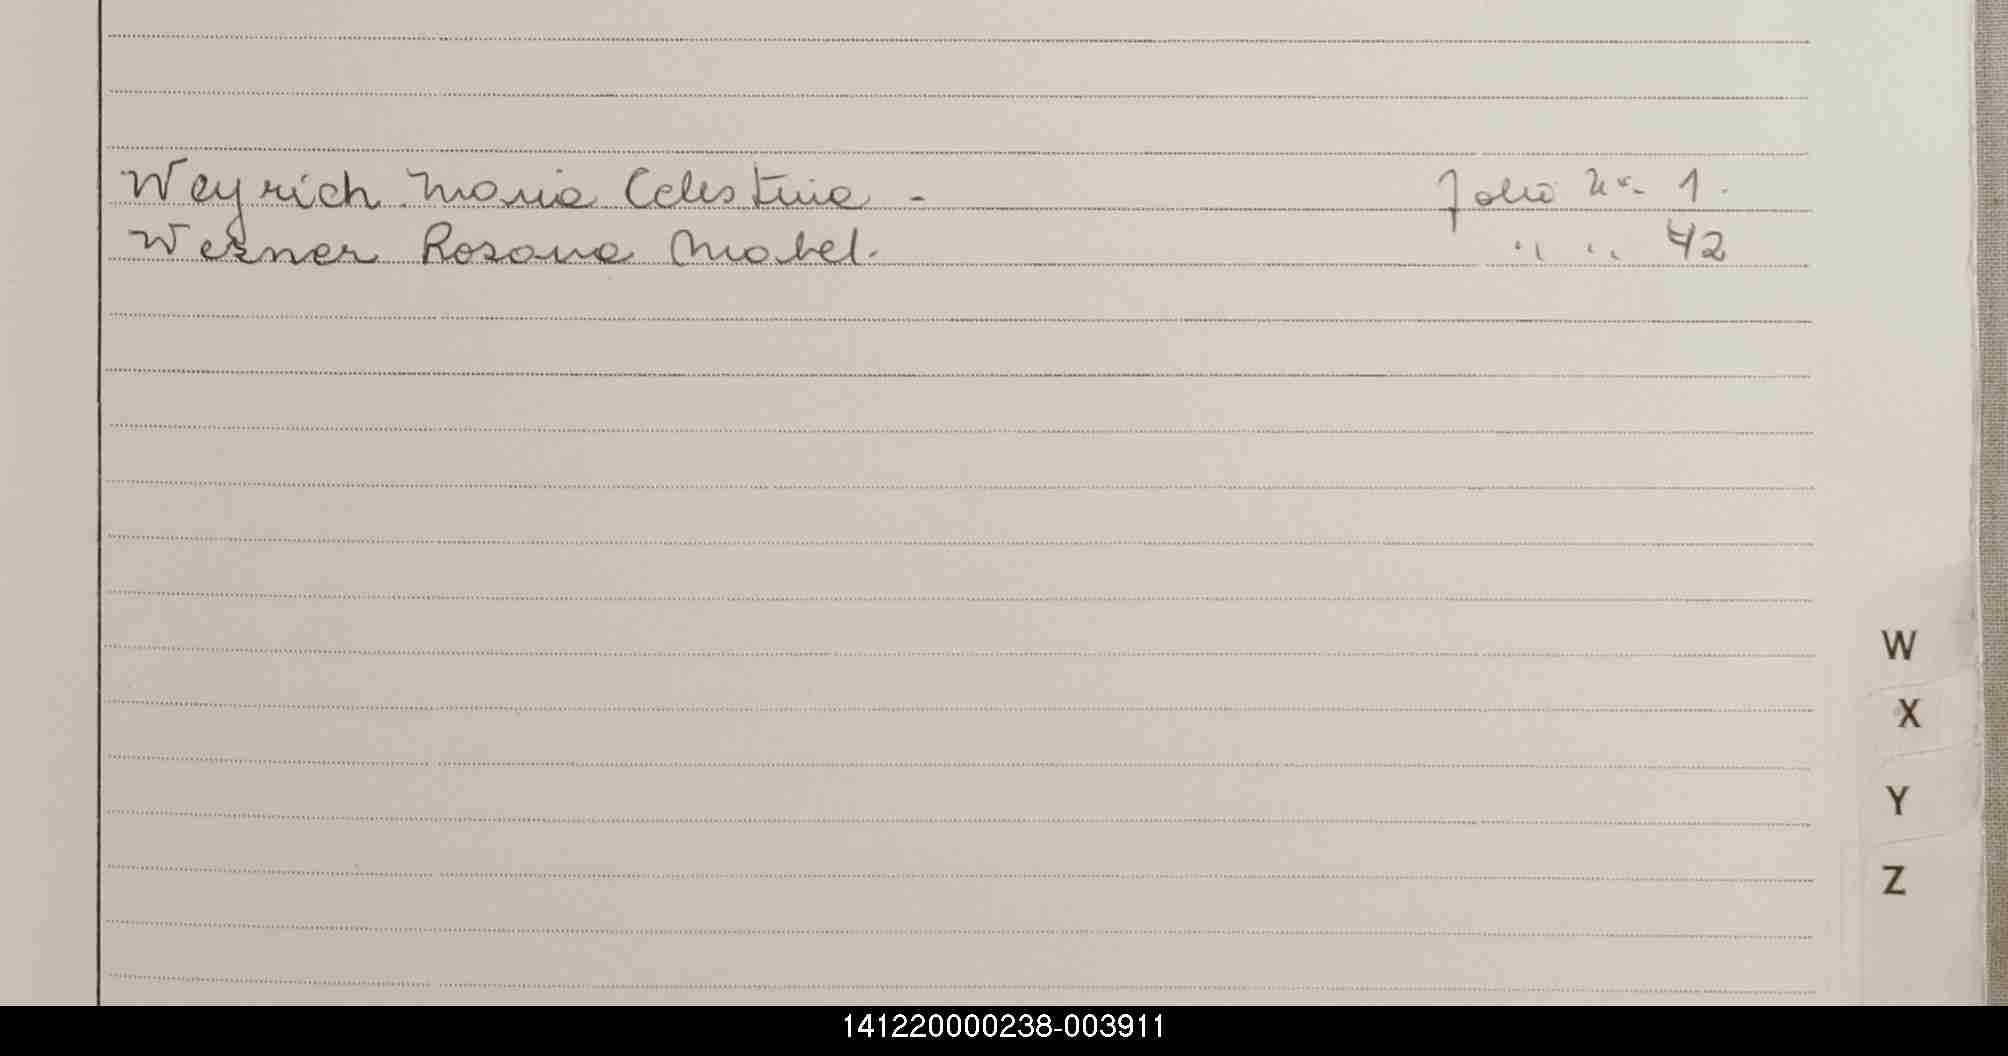 Weyrich Maria Celestina - Folio Nº 1.
Wesner Rosana Mabel. " " 42
W
X
Y
Z
141220000238-003911